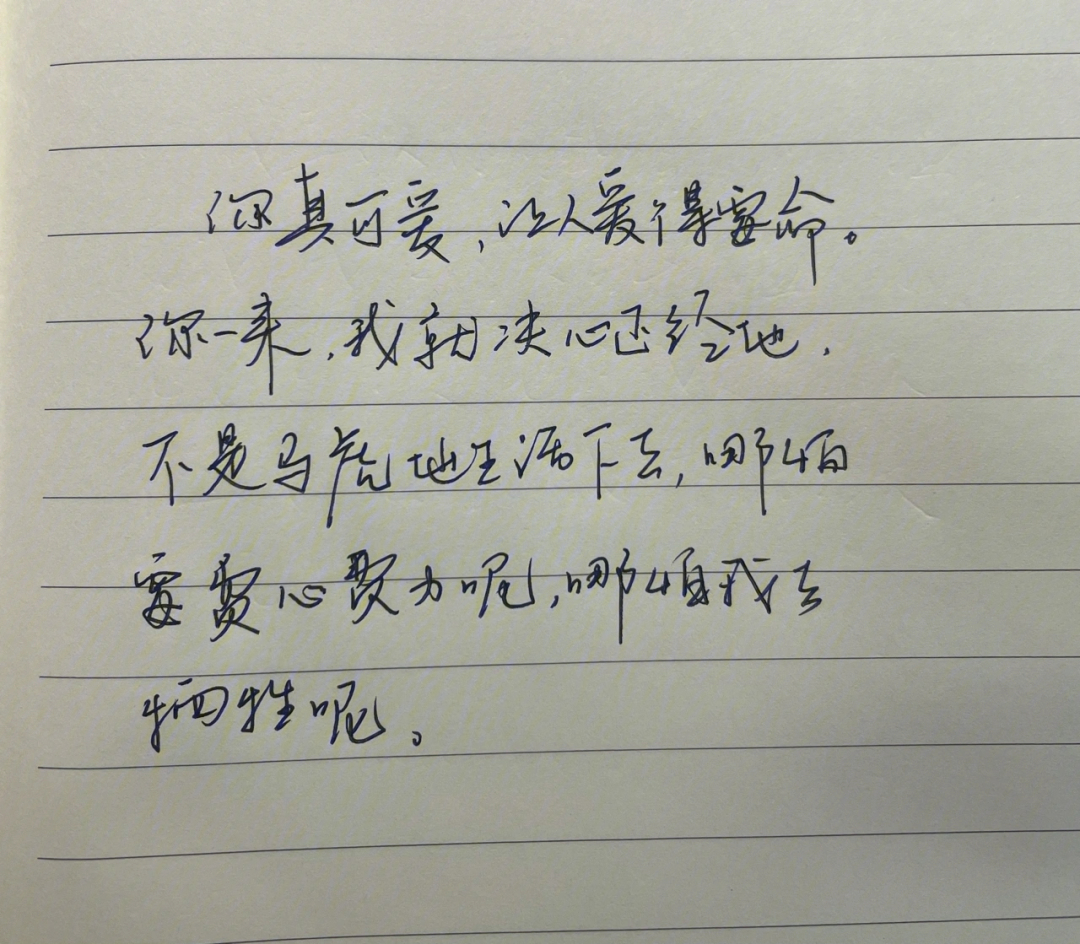 你真可爱，让人爱得要命。
你一来，我就决心正经地，
不是马虎地生活下去，哪怕
要费心费力呢，哪怕我去
牺牲呢。